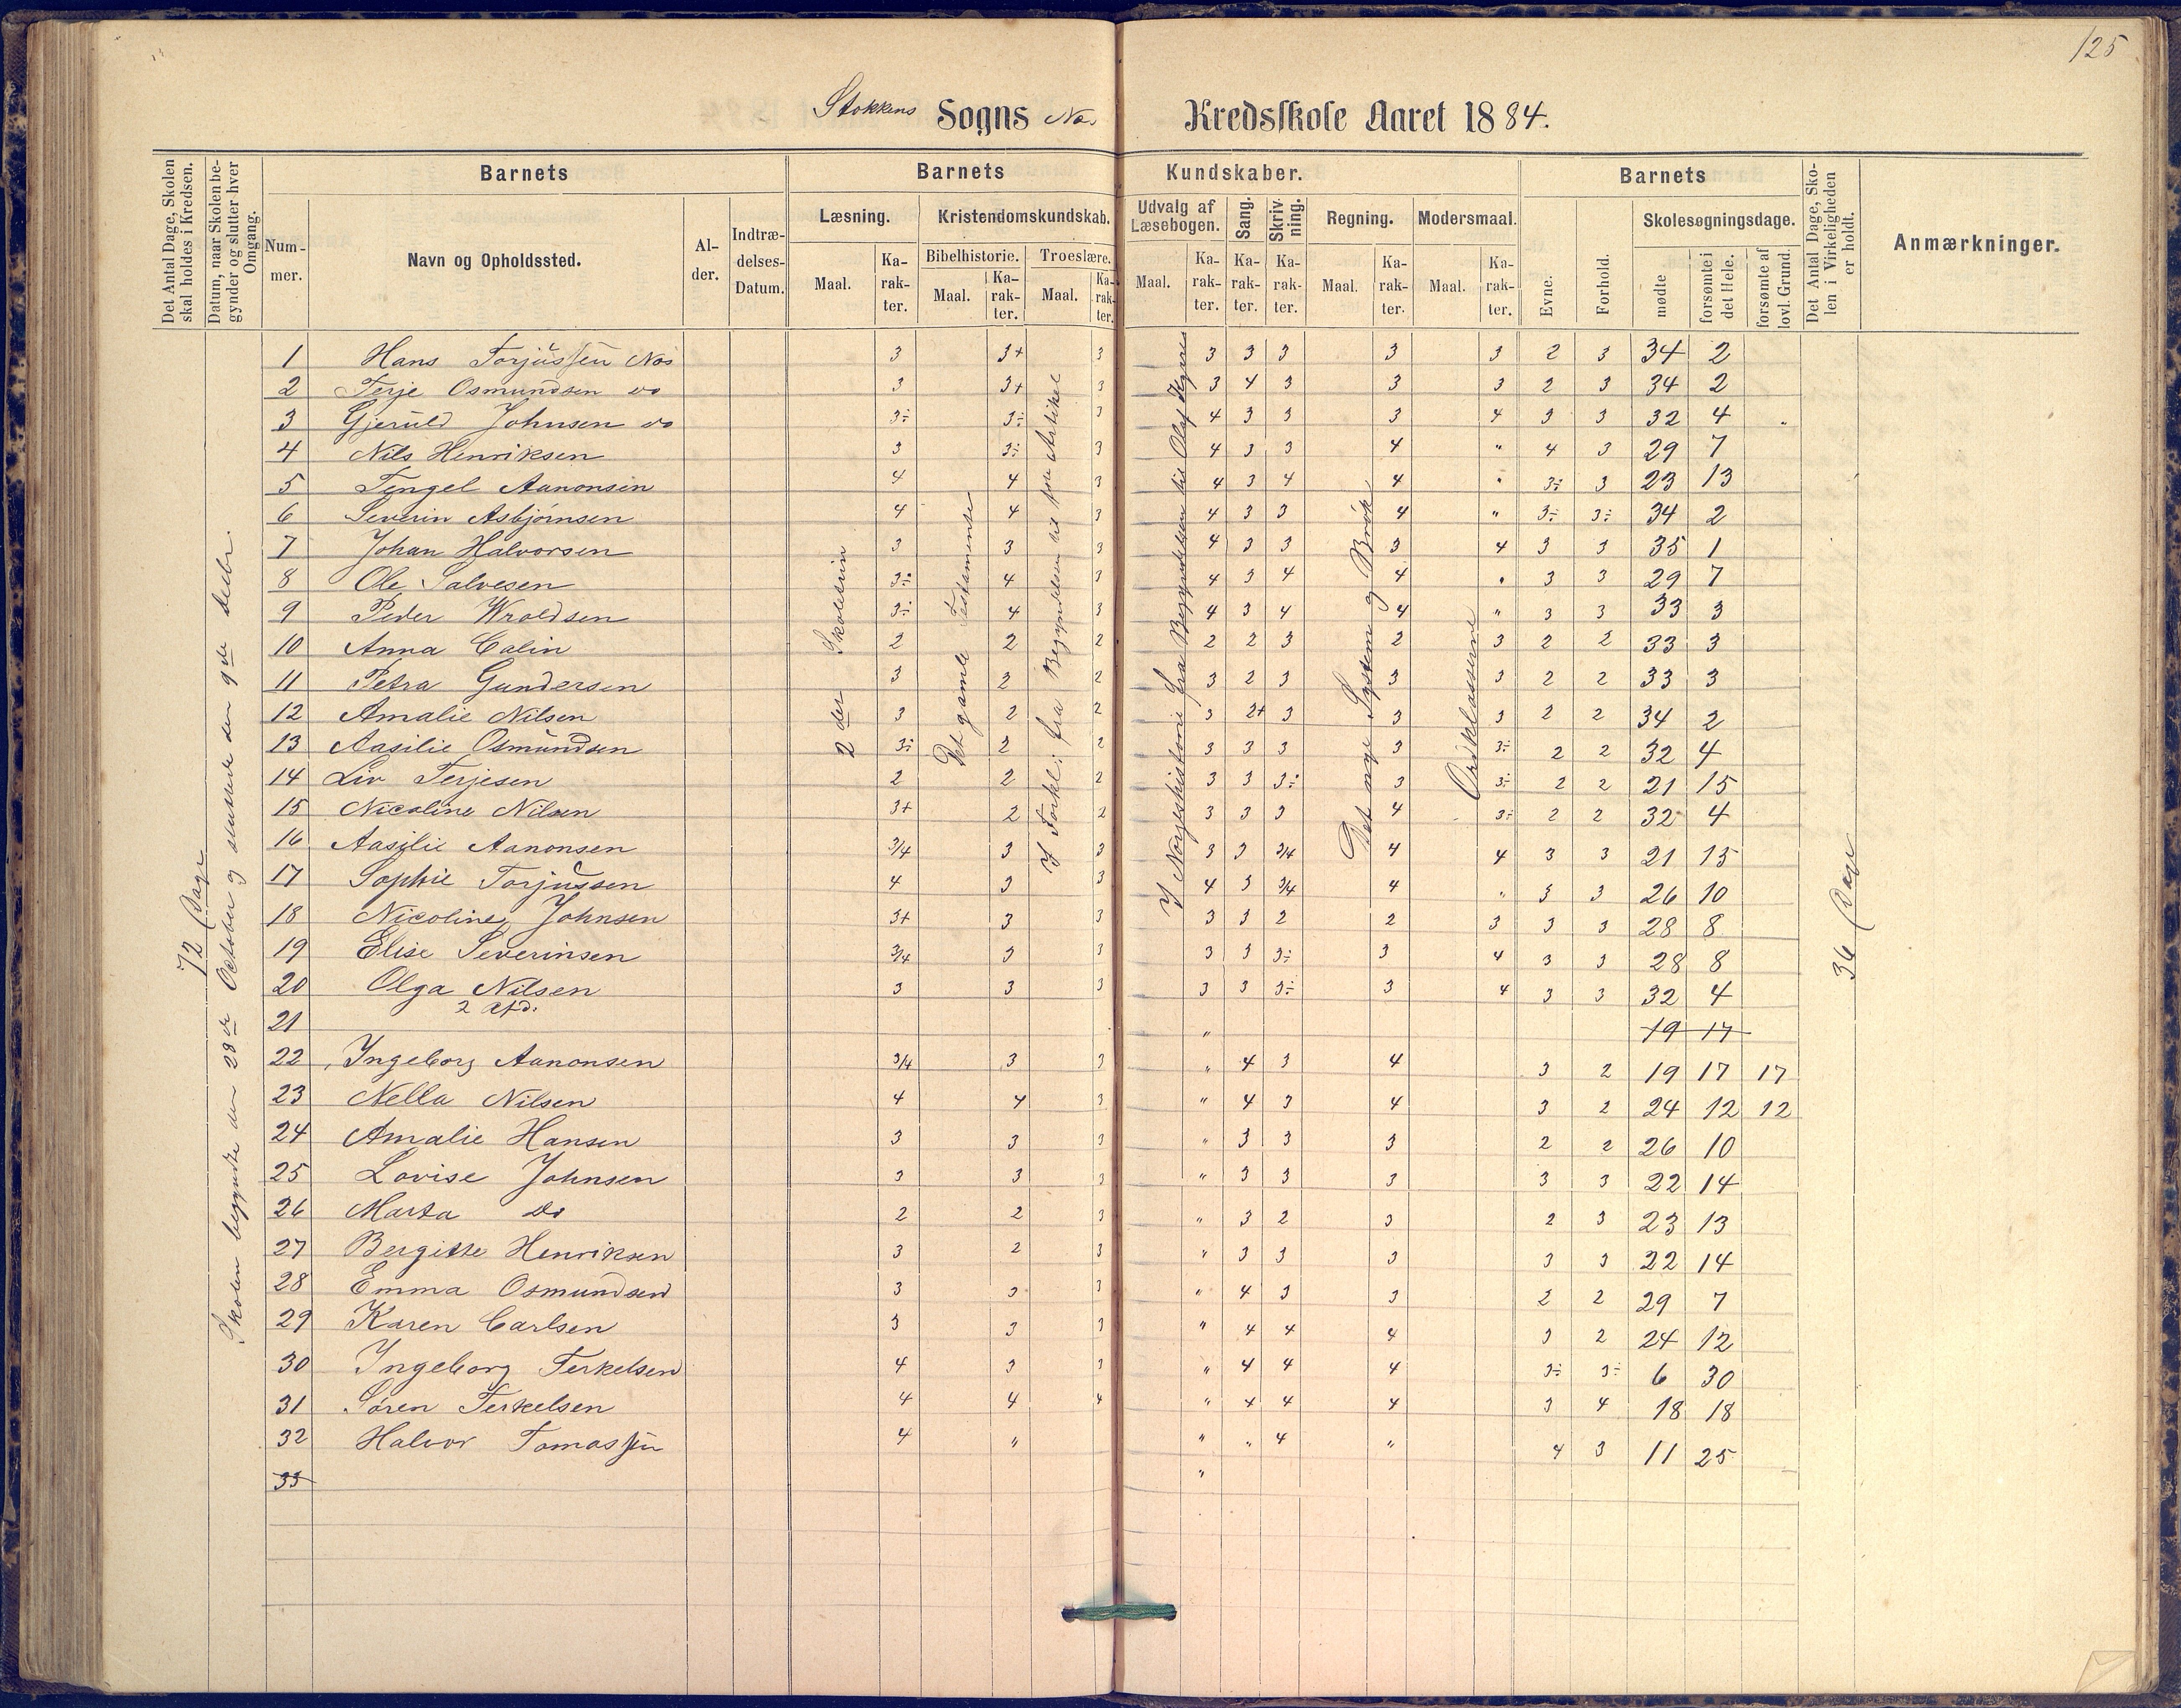 125
Stokkens Sogns Nas Kredsskole Aaret 1884.
Det Antal Dage, Skolen skal holdes i Kredsen.
Datum, naar Skolen begynder og slutter hver Omgang.
Barnets
Nummer.
Navn og Opholdssted.
Alder.
Indtrædelses-Datum.
Barnets Kundskaber.
Læsning.
Maal.
Karakter.
Kristendomskundskab.
Bibelhistorie.
Maal.
Karakter.
Troeslære.
Maal.
Karakter.
Udvalg af Læsebogen.
Maal.
Karakter.
Sang.
Karakter.
Skrivning.
Karakter.
Regning.
Maal.
Karakter.
Modersmaal.
Maal.
Karakter.
Barnets
Evne.
Forhold.
Skolesøgningsdage.
mødte
forsømte i det Hele.
forsømte af lovl. Grund.
Det Antal Dage, Skolen i Virkeligheden er holdt.
Anmærkninger.
72 Dage
Skolen begyndte den 28de October og sluttede den 9de Decbr.
2der Skoletrin
Det gamle Testamente
I Forkl: fra Begyndelsen til 3die Artikel
I Norgeshistorie fra Begyndelsen til Olaf Kyrre
Det nye System og Brøk
Ordklasserne
36 Dage
1 Hans Torjussen Nas 3 3+ 3 3 3 3 3 3 2 3 34 2
2 Terje Osmundsen do 3 3+ 3 3 4 3 3 3 2 3 34 2
3 Gjeruld Johnsen do 3÷ 3÷ 3 4 3 3 3 4 3 3 32 4
4 Nils Henriksen 3 3÷ 3 4 3 3 4 " 4 3 29 7
5 Tengel Aanonsen 4 4 3 4 3 4 4 " 3÷ 3 23 13
6 Severin Asbjørnsen 4 4 3 4 3 3 4 " 3÷ 3÷ 34 2
7 Johan Halvorsen 3 3 3 4 3 3 3 4 3 3 35 1
8 Ole Salvesen 3÷ 4 3 4 3 4 4 " 3 3 29 7
9 Peder Wroldsen 3÷ 4 3 4 3 4 4 " 3 3 33 3
10 Anna Calin 2 2 2 2 2 3 2 3 2 2 33 3
11 Petra Gundersen 3 2 2 3 2 3 3 3 2 2 33 3
12 Amalie Nilsen 3 2 2 3 2+ 3 3 3 2 2 34 2
13 Aasilie Osmundsen 3÷ 2 2 3 3 3 3 3÷ 2 2 32 4
14 Liv Terjesen 2 2 2 3 3 3÷ 3 3÷ 2 2 21 15
15 Nicoline Nilsen 3+ 2 2 3 3 3 4 3÷ 2 2 32 4
16 Aasilie Aanonsen 3/4 3 3 3 3 3/4 4 4 3 3 21 15
17 Sophie Torjussen 4 3 3 4 3 3/4 4 " 3 3 26 10
18 Nicoline Johnsen 3+ 3 3 3 3 2 2 3 3 3 28 8
19 Elise Severinsen 3/4 3 3 3 3 3÷ 3 4 3 3 28 8
20 Olga Nilsen 3 3 3 3 3 3÷ 3 4 3 3 32 4
2 Afd.
21 " 19 17
22 Ingeborg Aanonsen 3/4 3 3 " 4 3 4 3 2 19 17 17
23 Nella Nilsen 4 4 3 " 4 3 4 3 2 24 12 12
24 Amalie Hansen 3 3 3 " 3 3 3 2 2 26 10
25 Lovise Johnsen 3 3 3 " 3 3 3 3 3 22 14
26 Marta do 2 2 3 " 3 2 3 2 3 23 13
27 Bergitte Henriksen 3 2 3 " 3 3 3 3 3 22 14
28 Emma Osmundsen 3 3 3 " 4 3 3 2 2 29 7
29 Karen Carlsen 3 3 3 " 4 4 4 3 2 24 12
30 Ingeborg Terkelsen 4 3 3 " 4 4 4 3÷ 3÷ 6 30
31 Søren Terkelsen 4 4 4 " 4 4 4 3 4 18 18
32 Halvor Tomassen 4 " " " 4 " 4 3 11 25
33 "